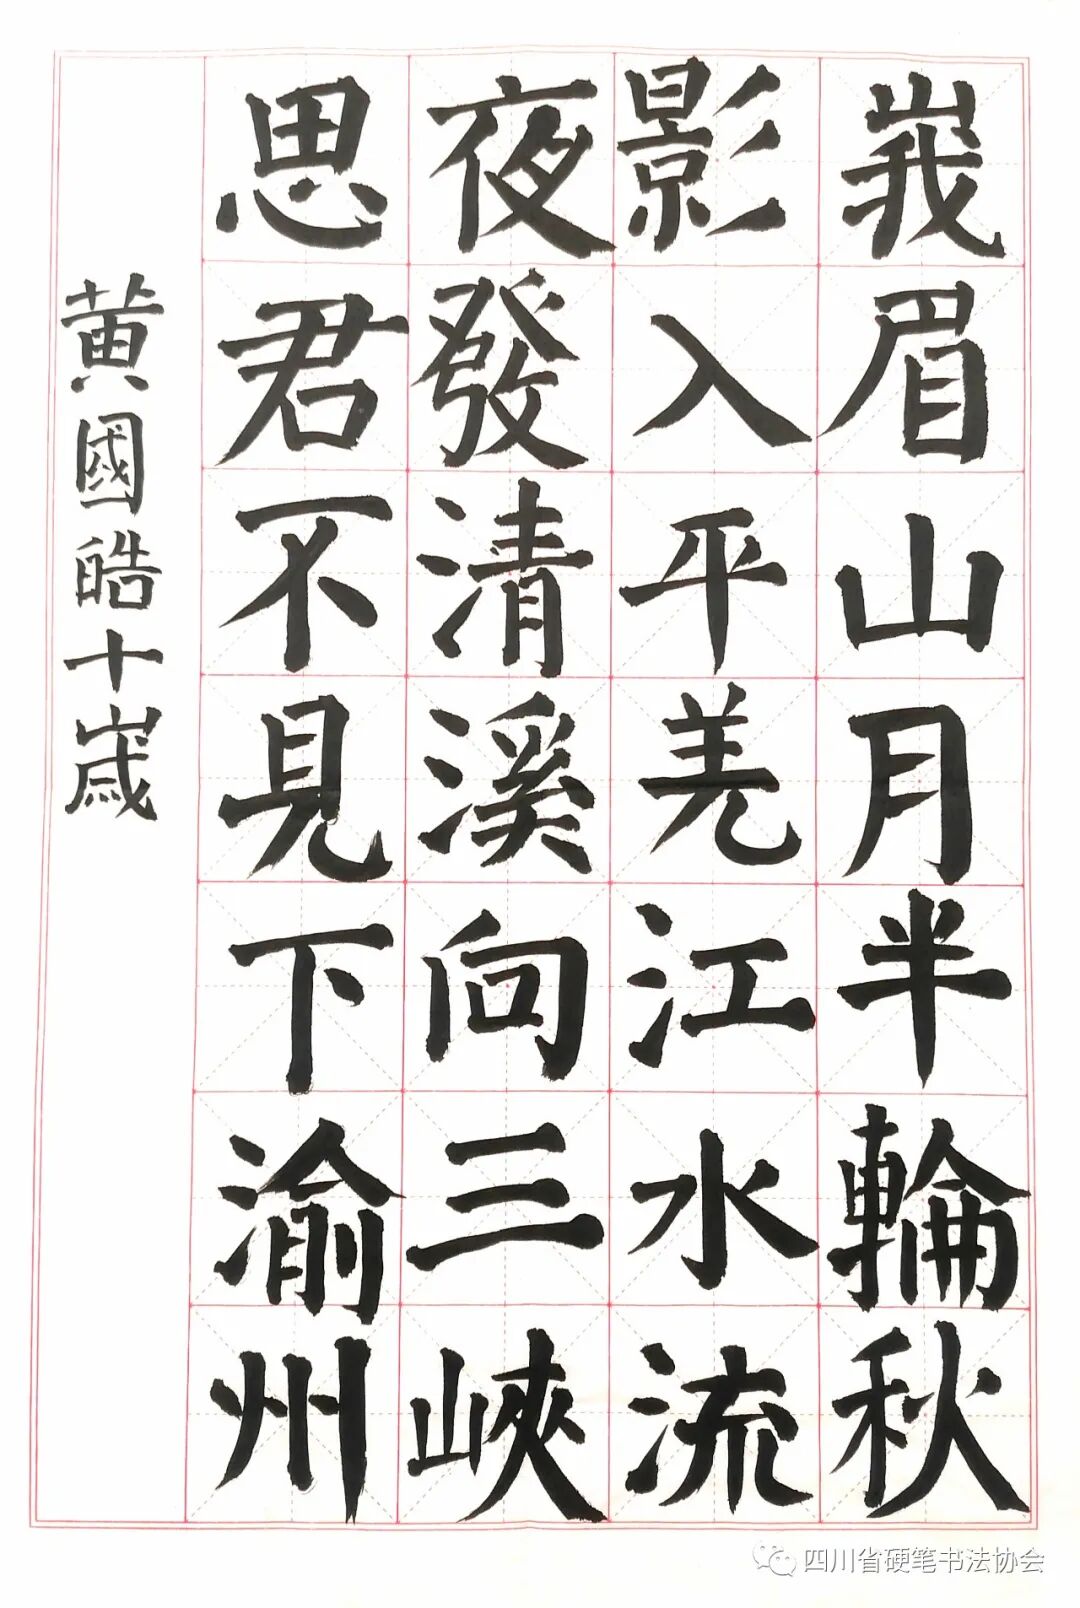 峩眉山月半輪秋
影入平羌江水流
夜發清溪向三峽
思君不見下渝州
黄國皓十歲
四川省硬笔书法协会